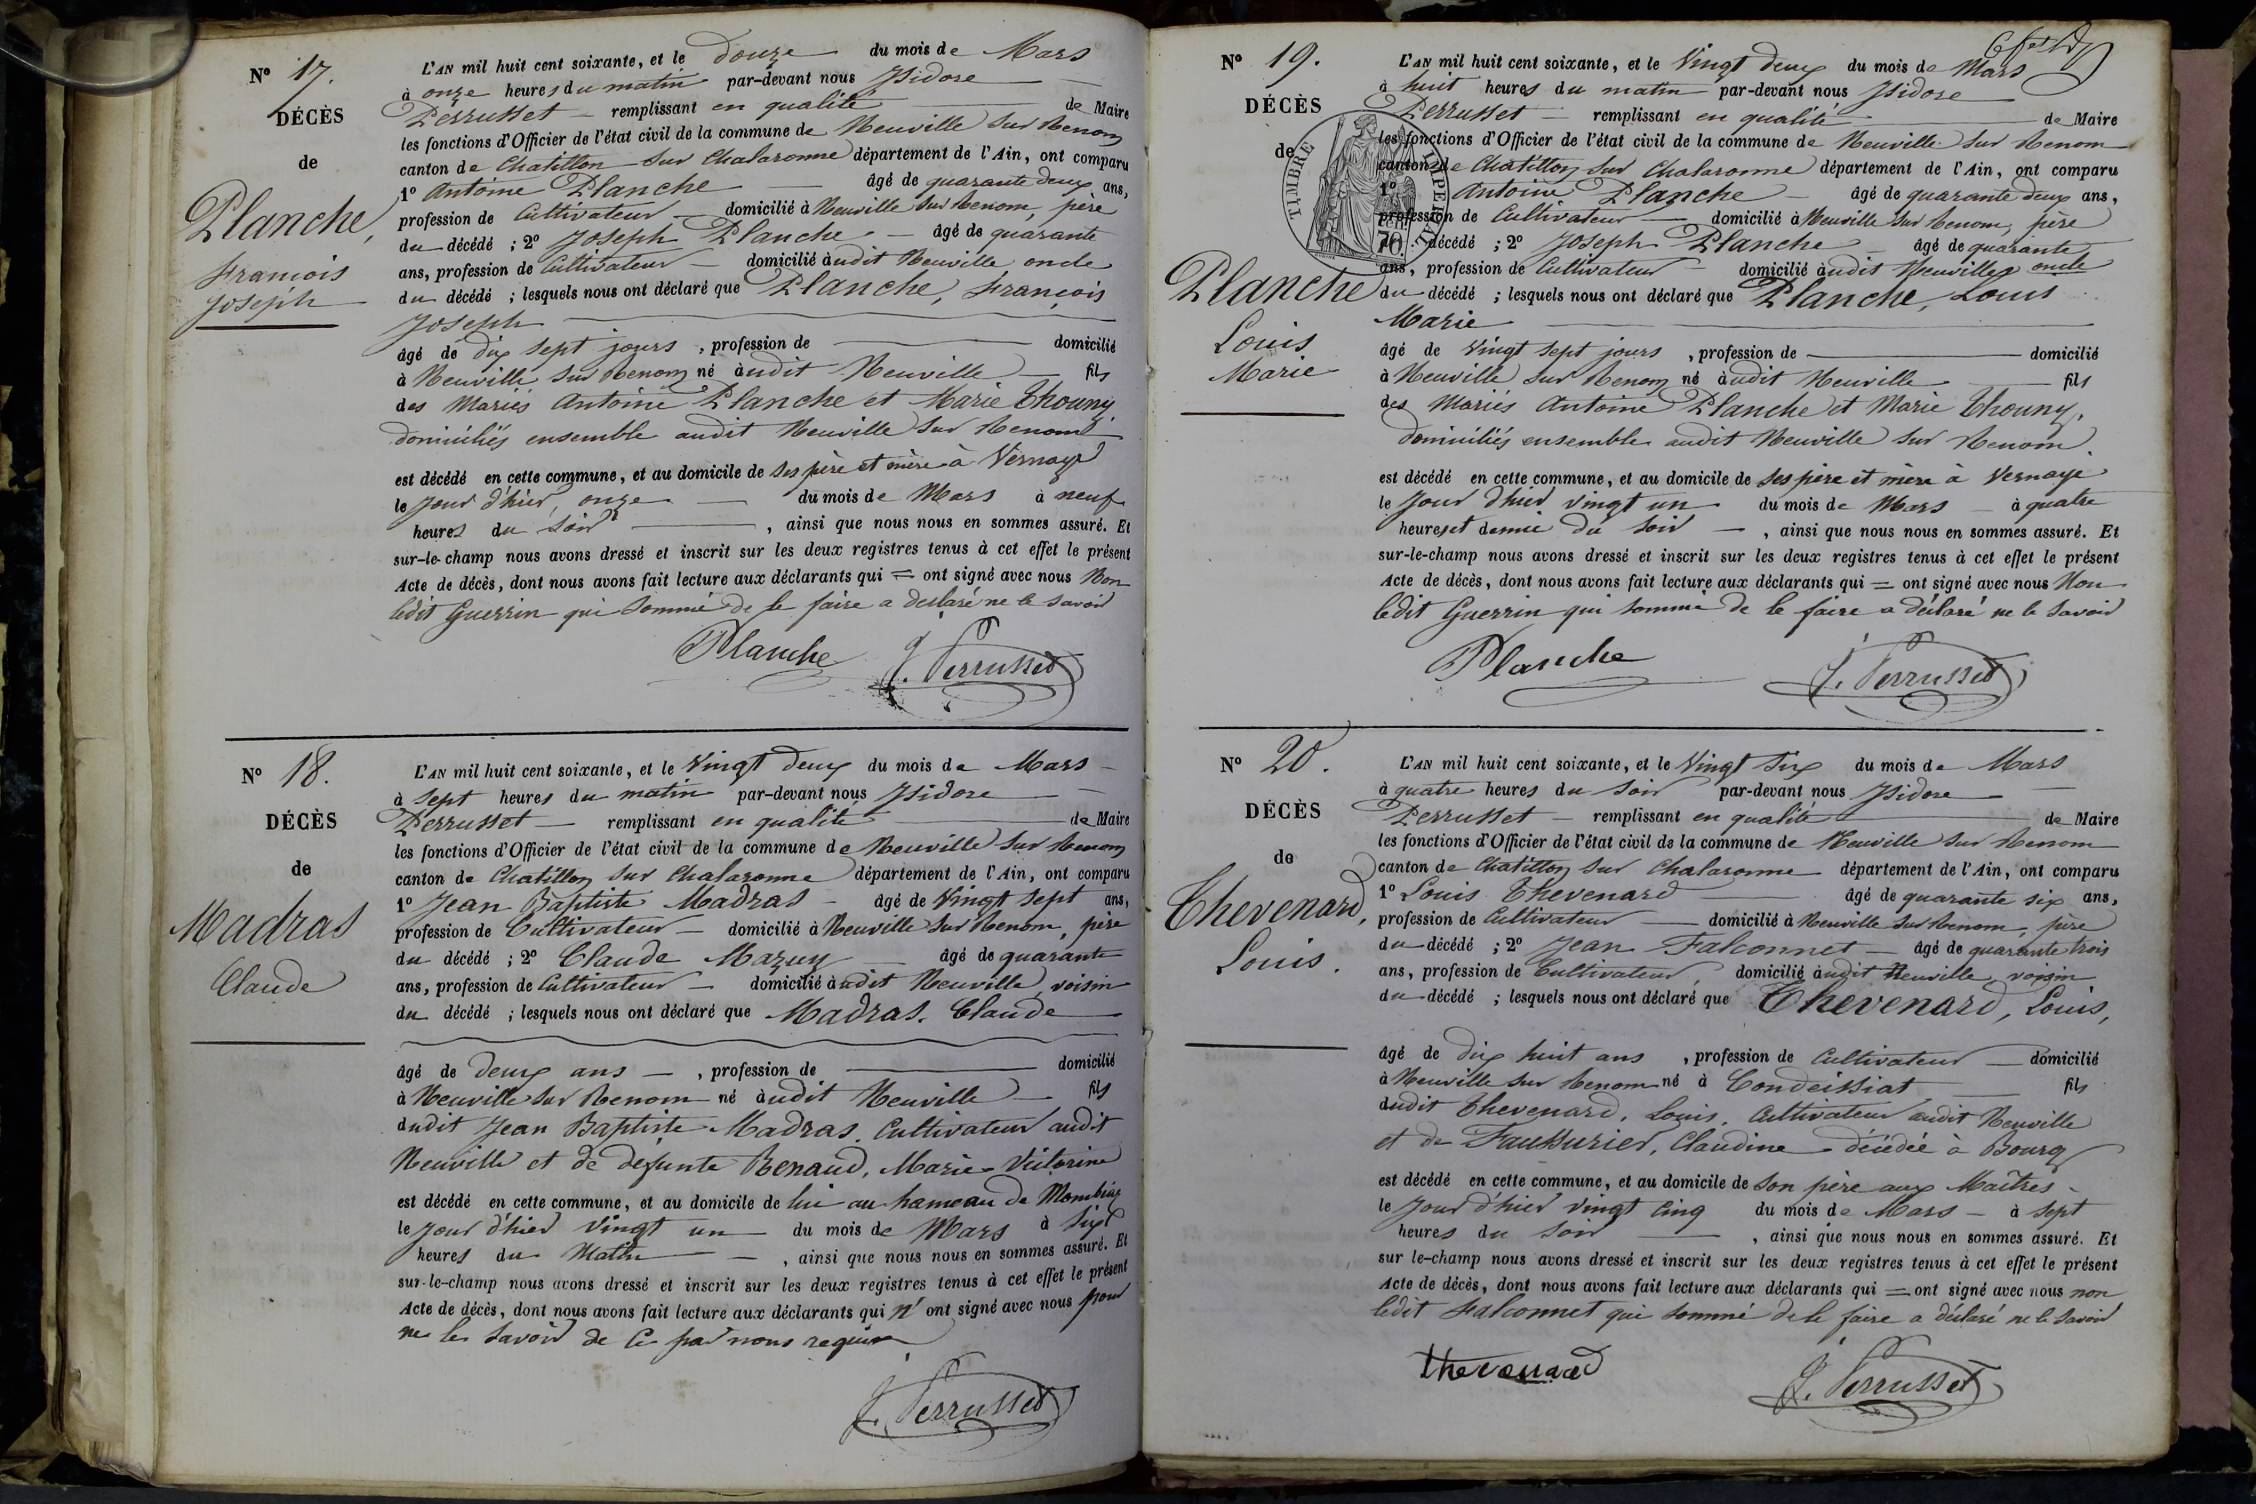 N° 17.
DÉCÈS
de
Planche,
François
Joseph
L'AN mil huit cent soixante, et le douze du mois de Mars
à onze heures du matin par-devant nous Isidore
Perrusset remplissant en qualité de Maire
les fonctions d'Officier de l'état civil de la commune de Neuville sur Renom
canton de Chatillon sur Chalaronne département de l'Ain, ont comparu
1° Antoine Planche âgé de quarante deux ans,
profession de Cultivateur domicilié à Neuville sur Renom, père
du décédé ; 2° Joseph Planche âgé de quarante
ans, profession de Cultivateur domicilié àudit Neuville oncle
du décédé ; lesquels nous ont déclaré que Planche, François
Joseph
âgé de dix sept jours , profession de domicilié
à Neuville sur Renom né àudit Neuville fils
des Mariés Antoine Planche et Marie Thouny
domiciliés ensemble audit Neuville sur Renom
est décédé en cette commune, et au domicile de ses père et mère à Vernaye
le jour d'hier, onze du mois de Mars à neuf
heures du soir , ainsi que nous nous en sommes assuré. Et
sur-le-champ nous avons dressé et inscrit sur les deux registres tenus à cet effet le présent
Acte de décès, dont nous avons fait lecture aux déclarants qui = ont signé avec nous Non
ledit Guerrin qui sommé de le faire a déclaré ne le savoir
Planche J. Perrusset
N° 18.
DÉCÈS
de
Madras
Claude
L'AN mil huit cent soixante, et le Vingt deux du mois de Mars
à sept heures du matin par-devant nous Isidore
Perrusset remplissant en qualité de Maire
les fonctions d'Officier de l'état civil de la commune de Neuville sur Renom
canton de Chatillon sur Chalaronne département de l'Ain, ont comparu
1° Jean Baptiste Madras âgé de Vingt sept ans,
profession de Cultivateur domicilié à Neuville sur Renom, père
du décédé ; 2° Claude Mazuy âgé de quarante
ans, profession de Cultivateur domicilié àudit Neuville, voisin
du décédé ; lesquels nous ont déclaré que Madras. Claude
âgé de deux ans , profession de domicilié
à Neuville sur Renom né àudit Neuville fils
dudit Jean Baptiste Madras. Cultivateur audit
Neuville et de defunte Renaud, Marie Victorine
est décédé en cette commune, et au domicile de lui au hameau de
le jour d'hier Vingt un du mois de Mars à six
heures du Matin , ainsi que nous nous en sommes assuré. Et
sur-le-champ nous avons dressé et inscrit sur les deux registres tenus à cet effet le présent
Acte de décès, dont nous avons fait lecture aux déclarants qui n' ont signé avec nous pour
ne le savoir de ce par nous requis
J. Perrusset
N° 19.
DÉCÈS
de
Planche
Louis
Marie
TIMBRE IMPERIAL
L'AN mil huit cent soixante, et le Vingt deux du mois de Mars
à huit heures du matin par-devant nous Isidore
Perrusset remplissant en qualité de Maire
les fonctions d'Officier de l'état civil de la commune de Neuville sur Renom
canton de Chatillon sur Chalaronne département de l'Ain, ont comparu
1° Antoine Planche âgé de quarante deux ans,
profession de Cultivateur domicilié à Neuville sur Renom, père
décédé ; 2° Joseph Planche âgé de quarante
ans, profession de Cultivateur domicilié àudit Neuville oncle
du décédé ; lesquels nous ont déclaré que Planche, Louis
Marie
âgé de Vingt sept jours , profession de domicilié
à Neuville sur Renom né àudit Neuville fils
des Mariés Antoine Planche et Marie Thouny,
domiciliés ensemble audit Neuville sur Renom.
est décédé en cette commune, et au domicile de ses père et mère à Vernaye
le jour d'hier vingt un du mois de Mars à quatre
heures et demie du soir , ainsi que nous nous en sommes assuré. Et
sur-le-champ nous avons dressé et inscrit sur les deux registres tenus à cet effet le présent
Acte de décès, dont nous avons fait lecture aux déclarants qui = ont signé avec nous Non
ledit Guerrin qui sommé de le faire a déclaré ne le savoir
Planche J. Perrusset
N° 20.
DÉCÈS
de
Thevenard,
Louis.
L'AN mil huit cent soixante, et le Vingt six du mois de Mars
à quatre heures du soir par-devant nous Isidore
Perrusset remplissant en qualité de Maire
les fonctions d'Officier de l'état civil de la commune de Neuville sur Renom
canton de Chatillon sur Chalaronne département de l'Ain, ont comparu
1° Louis Thevenard âgé de quarante six ans,
profession de Cultivateur domicilié à Neuville sur Renom, père
du décédé ; 2° Jean Falconnet âgé de quarante trois
ans, profession de Cultivateur, domicilié àudit Neuville, voisin
du décédé ; lesquels nous ont déclaré que Thevenard, Louis,
âgé de dix huit ans , profession de Cultivateur domicilié
à Neuville sur Renom né à Condeissiat fils
dudit Thevenard. Louis. Cultivateur audit Neuville
et de Faussurier, Claudine décédée à Bourg
est décédé en cette commune, et au domicile de son père aux Maîtres
le jour d'hier vingt cinq du mois de Mars à sept
heures du soir , ainsi que nous nous en sommes assuré. Et
sur le-champ nous avons dressé et inscrit sur les deux registres tenus à cet effet le présent
Acte de décès, dont nous avons fait lecture aux déclarants qui = ont signé avec nous non
ledit Falconnet qui sommé de le faire a déclaré ne le savoir
thevenard J. Perrusset